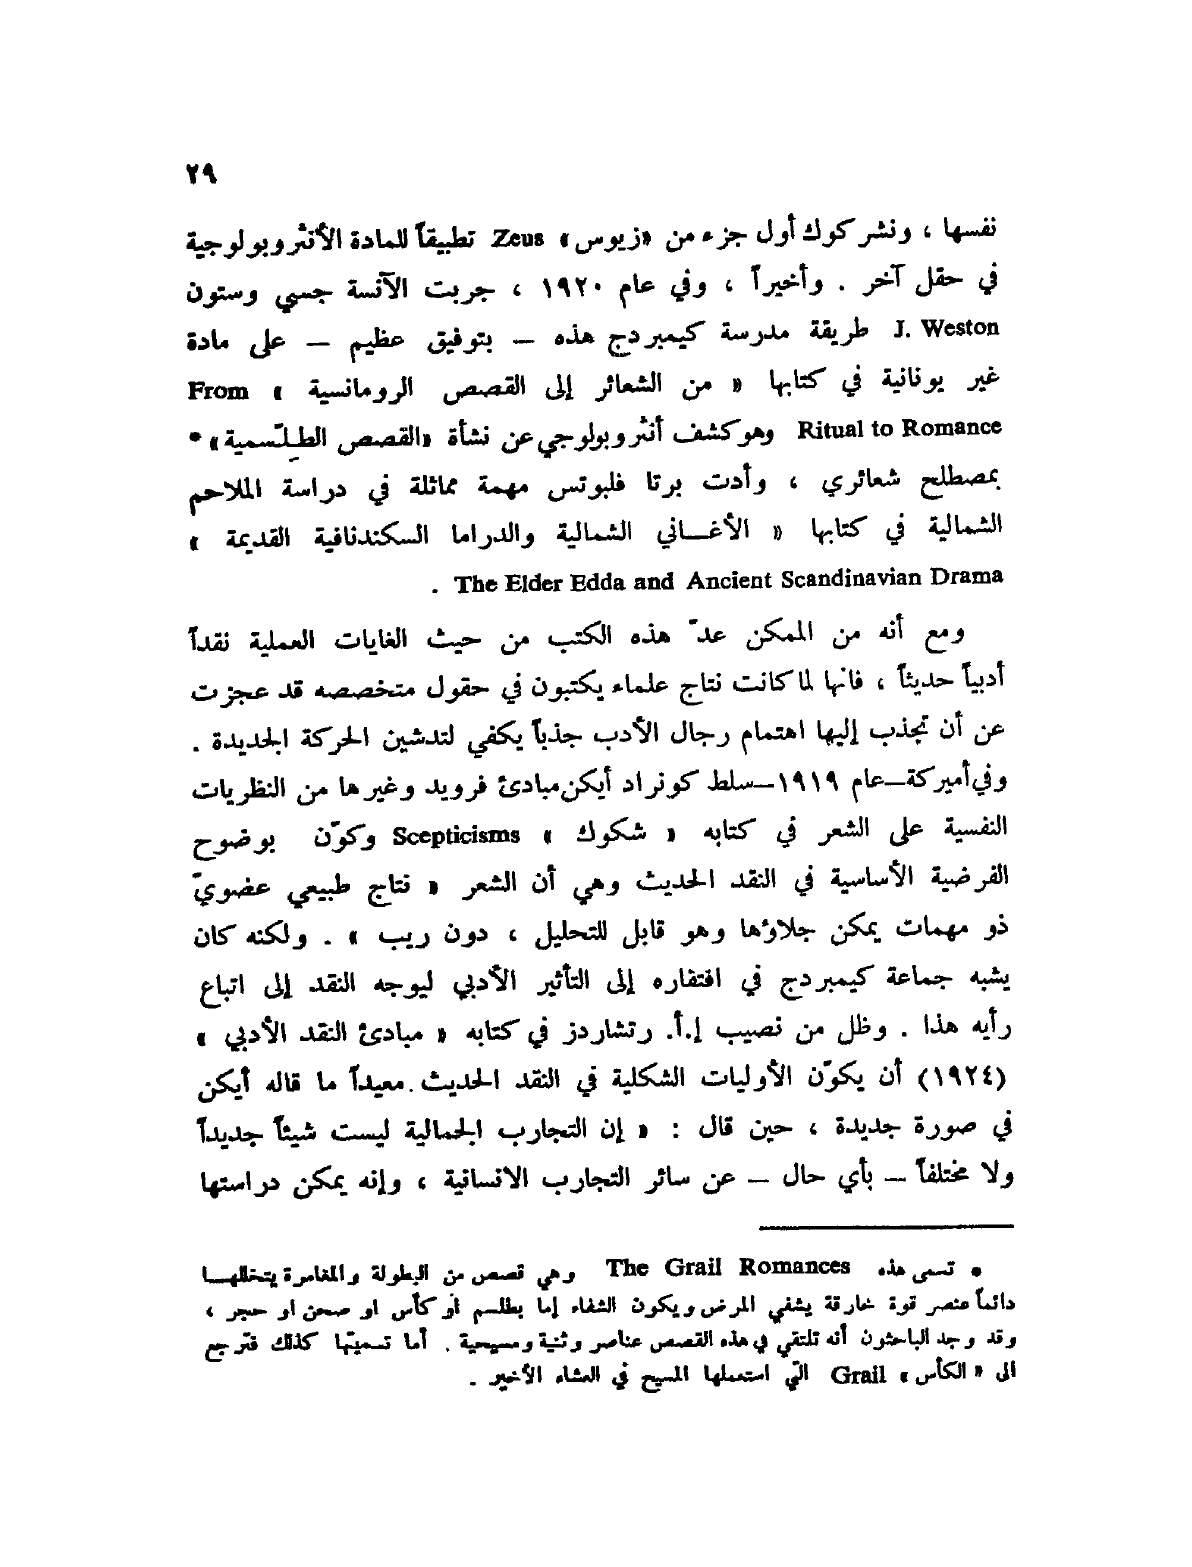 ٢٩
نفسها ، ونشر كوك أول جزء من «زيوس» Zeus تطبيقاً للمادة الأنثروبولوجية
في حقل آخر . وأخيراً ، وفي عام ١٩٢٠ ، جربت الآنسة جسي وستون
J. Weston طريقة مدرسة كيمبردج هذه — بتوفيق عظيم — على مادة
غير يونانية في كتابها « من الشعائر إلى القصص الرومانسية » From
Ritual to Romance وهو كشف أنثروبولوجي عن نشأة «القصص الطِلّسمية» *
بمصطلح شعائري ، وأدت برتا فلبوتس مهمة مماثلة في دراسة الملاحم
الشمالية في كتابها « الأغـاني الشمالية والدراما السكندنافية القديمة »
The Elder Edda and Ancient Scandinavian Drama .
ومع أنه من الممكن عدّ هذه الكتب من حيث الغايات العملية نقداً
أدبياً حديثاً ، فانها لما كانت نتاج علماء يكتبون في حقول متخصصه قد عجزت
عن أن تجذب إليها اهتمام رجال الأدب جذباً يكفي لتدشين الحركة الجديدة .
وفي أميركة—عام ١٩١٩—سلط كونراد أيكن مبادئ فرويد وغيرها من النظريات
النفسية على الشعر في كتابه « شكوك » Scepticisms وكوّن بوضوح
الفرضية الأساسية في النقد الحديث وهي أن الشعر « نتاج طبيعي عضويّ
ذو مهمات يمكن جلاؤها وهو قابل للتحليل ، دون ريب » . ولكنه كان
يشبه جماعة كيمبردج في افتقاره إلى التأثير الأدبي ليوجه النقد إلى اتباع
رأيه هذا . وظل من نصيب إ.أ. رتشاردز في كتابه « مبادئ النقد الأدبي »
(١٩٢٤) أن يكوّن الأوليات الشكلية في النقد الحديث . معيداً ما قاله أيكن
في صورة جديدة ، حين قال : « إن التجارب الجمالية ليست شيئاً جديداً
ولا مختلفاً — بأي حال — عن سائر التجارب الانسانية ، وإنه يمكن دراستها
* تسمى هذه The Grail Romances وهي قصص من البطولة والمغامرة يتخللهـا
دائماً عنصر قوة خارقة يشفي المرض ويكون الشفاء إما بطلسم أو كأس او صحن او حجر ،
وقد وجد الباحثون أنه تلتقي في هذه القصص عناصر وثنية ومسيحية . أما تسميتها كذلك فترجع
الى « الكأس » Grail التي استعملها المسيح في العشاء الأخير .